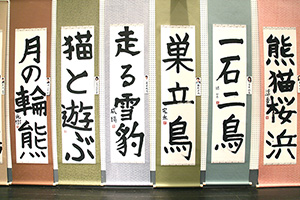 熊猫桜浜
一石二鳥
巣立鳥
走る雪豹
猫と遊ぶ
月の輪熊